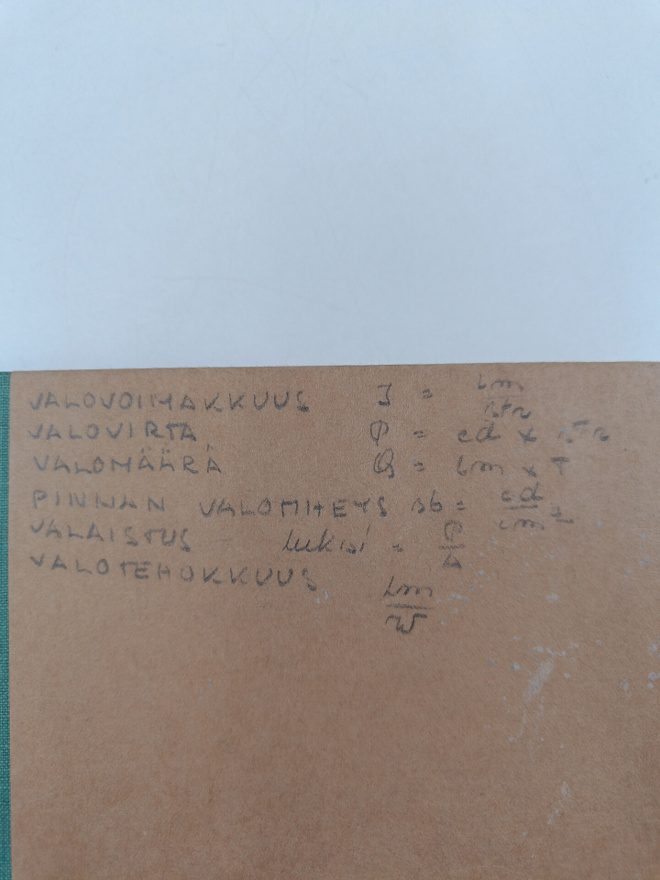 VALOVOIMAKKUUS I = lm/str
VALOVIRTA φ = cd x str
VALOMÄÄRÄ Q = lm x T
PINNAN VALOTIHEYS sb = cd/cm²
VALAISTUS luksi = φ/A
VALOTEHOKKUUS lm/W